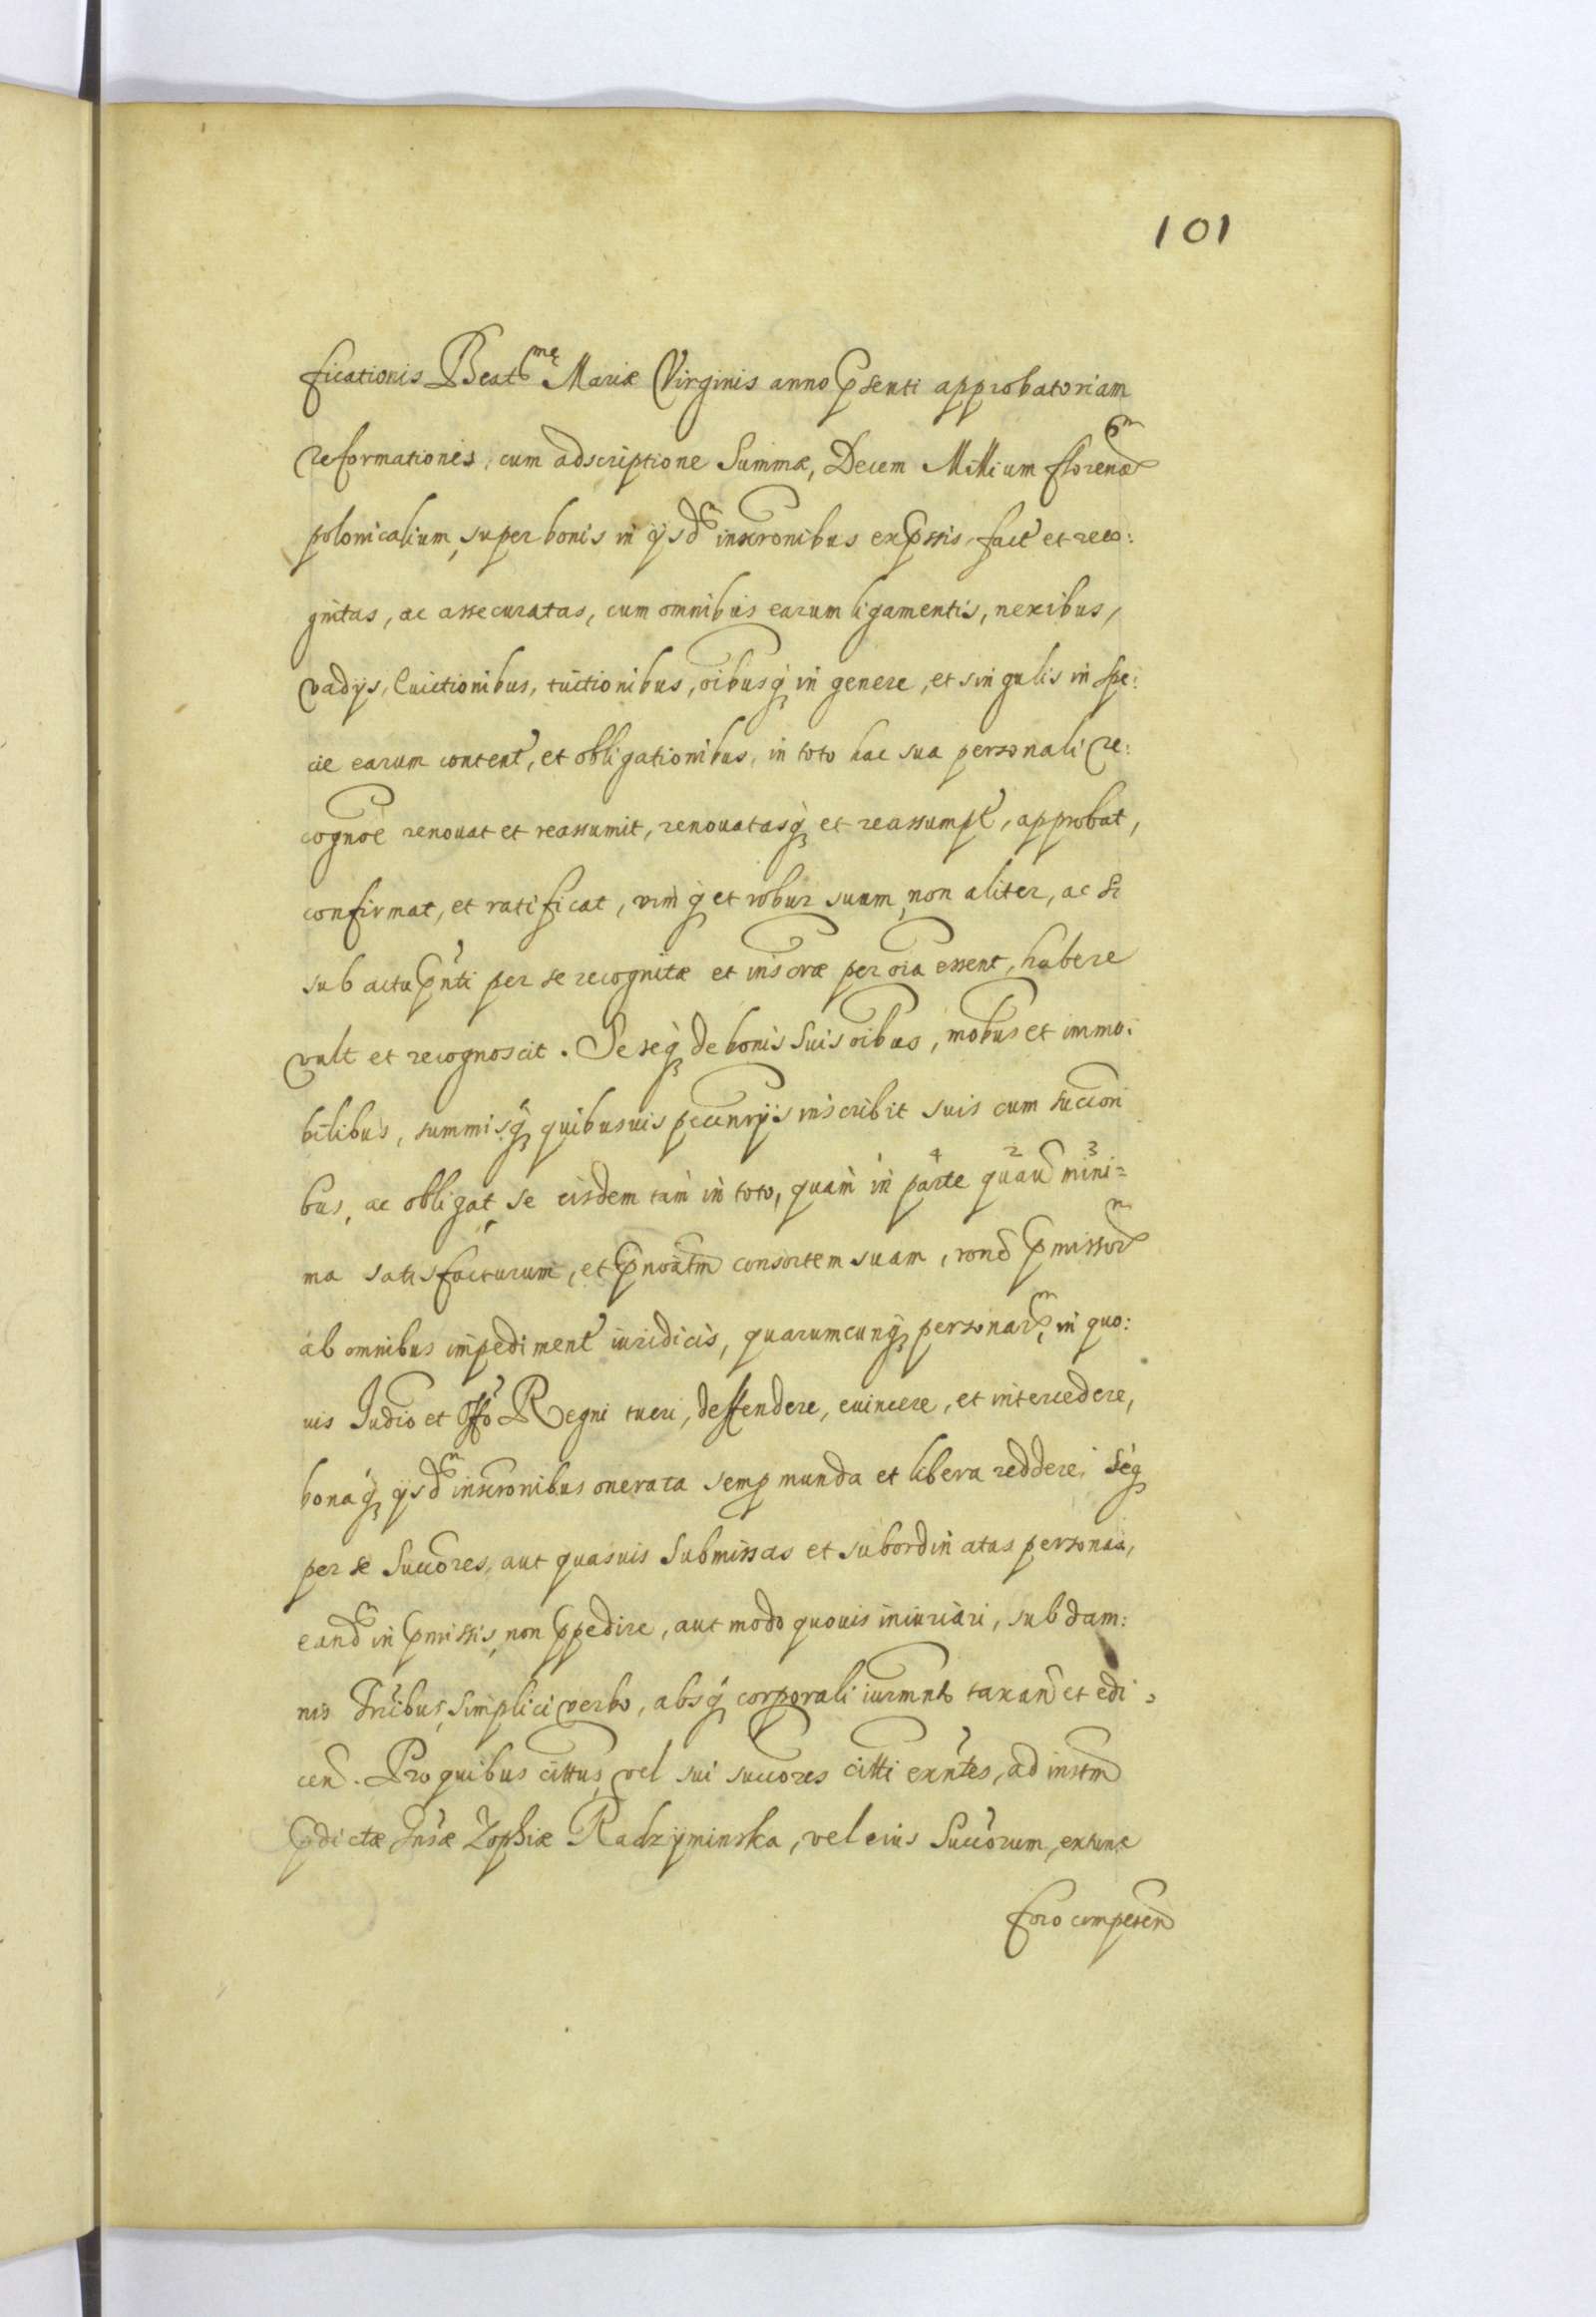 101
ficationis Beatsmę Mariæ Virginis anno pſenti approbatoriam
reformationes, cum adscriptione Summæ, Decem Millium florenor
polonicalium, super bonis in ijsdm inscronibus expssis, fact et reco:
gnitas, ac assecuratas, cum omnibus earum ligamentis, nexibus,
vadijs, Euictionibus, tuitionibus, oibusq in genere, et singulis in spe:
cie earum content, et obligationibus, in toto hac sua personali re:
cognoe renouat et reassumit, renouatasq et reassumpt, approbat,
confirmat, et ratificat, vimq et robur suum, non aliter, ac si
sub actu pnti per se recognitæ et inscræ per oia essent, habere
vult et recognoscit. Se seq de bonis Suis oibus, mobus et immo:
bilibus, summisq quibusuis pecunrijs inscribit suis cum succori
bus, ac obligat se eisdem tam in toto, quam in parte quaū mini=
4 2 3
ma satisfacturum, et pnoatm consortem suam, rone pmissor
ab omnibus impediment iuridicis, quarumcunq personar, in quo:
uis Judio et Offo Regni tueri, deffendere, euincere, et intercedere,
bonaq ijsdm inscronibus onerata semp munda et libera reddere, seq
per se Succores, aut quasuis Submissas et subordinatas personas,
eandm in pmissis, non ppedire, aut modo quouis iniuriari, sub dam:
nis tribus, simplici verbo, absq corporali iurmnto taxand et edi:
cend. Pro quibus cittus, vel sui succores citti exntes, ad instm
pdictæ Gnsæ Zophiæ Radzyminska, vel eius Succorum, extunc
foro competen